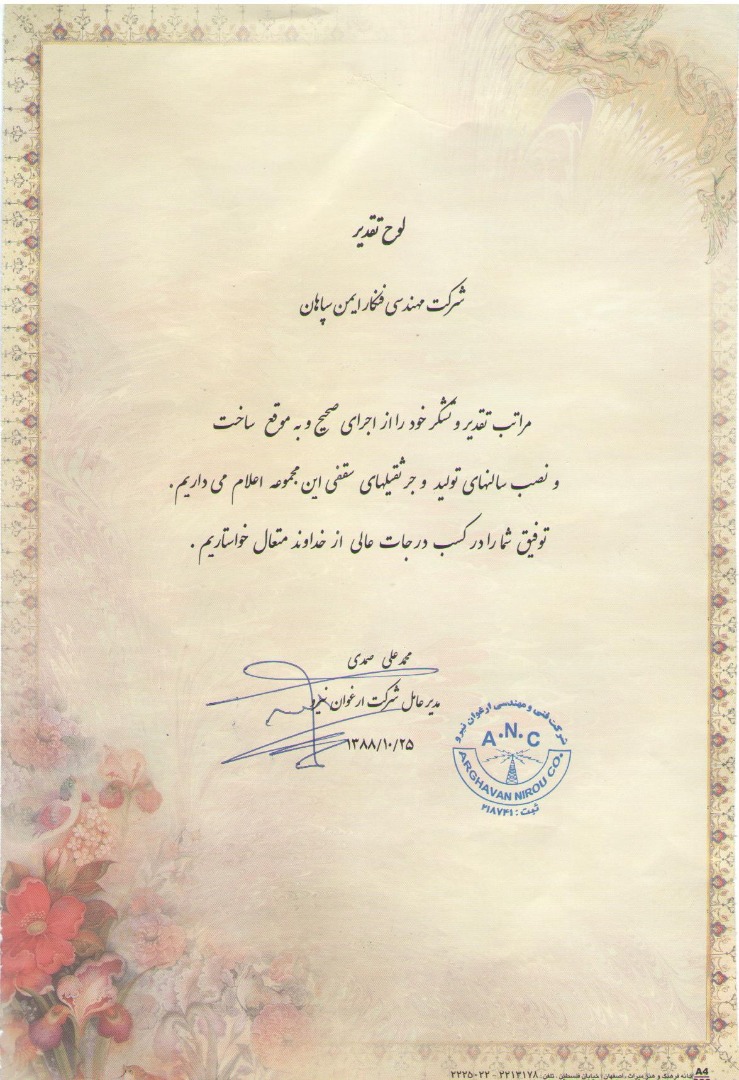 لوح تقدیر
شرکت مهندسی فنکار ایمن سپاهان
مراتب تقدیر و تشکر خود را از اجرای صحیح و به موقع ساخت
و نصب سالنهای تولید و جرثقیلهای سقفی این مجموعه اعلام می داریم.
توفیق شما را در کسب درجات عالی از خداوند متعال خواستاریم.
محمد علی صمدی
مدیر عامل شرکت ارغوان نیرو
۱۳۸۸/۱۰/۲۵
شرکت فنی و مهندسی ارغوان نیرو
A.N.C
ARGHAVAN NIROU CO.
ثبت: ۲۱۸۷۴۱
خانه فرهنگ و هنر میراث، اصفهان: خیابان فلسطین، تلفن: ۲۲۱۳۱۷۸ - ۲۲۲۵۰۲۲
A4